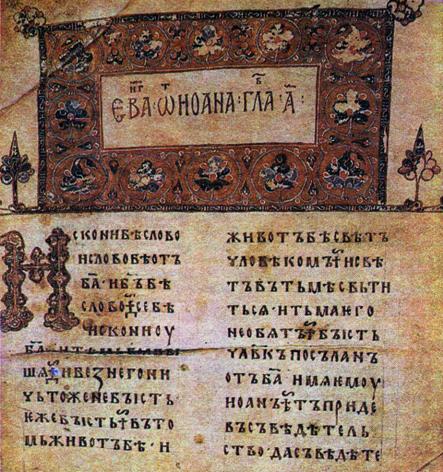 ЄВАⷩ҇ⷢ҇·ѾИОАНА·ГЛАⷡ҇·А҃:
ИСКОНИБѢСЛОВО
ИСЛОВОБѢОТЪ
БА҃·ИБЪ҃БѢ
СЛОВО·СЕБѢ
ИСКОНИОУ
БА҃·ИТѢМЬ
ШѦ·ИБЕЗНЕГОНИ
ЧЬТОЖЕНЕБЫСТЬ
ЕЖЕБЫСТЬ·ВЪТО
МЬЖИВОТЪБѢ·И
ЖИВОТЪБѢСВѢТЪ
ЧЛОВѢКОМЪ·ИСВѢ
ТЪВЪТЬМѢСВЬТИ
ТЬСЯ·ИТЬМАѤГО
НЕОБѦТЪ·БЫСТЬ
ЧЛ҃ВКЪПОСЪЛАНЪ
ОТЪБА҃·ИМѦѤМОУ
ИОАНЪ·ТЪПРИДЕ
ВЪСЪВѢДѢТЕЛЬ
СТВО·ДАСЪВѢДѢТЕ